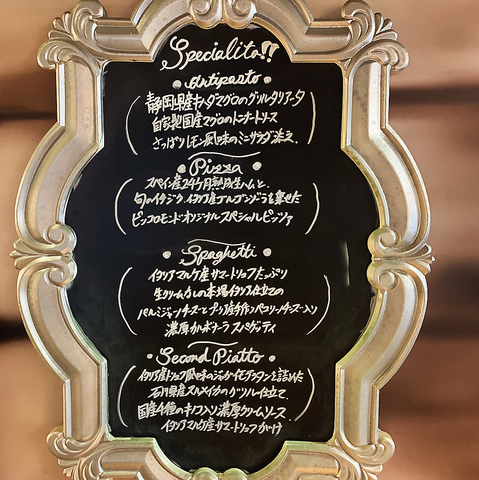 Specialita!!
Antipasto
静岡県産キハダマグロのグリル タリアータ
自家製国産マグロのトンナートソース
さっぱりレモン風味のミニサラダ添え.
Pizza
スペイン産24ヶ月熟成生ハムと、
旬のイチジク、イタリア産ゴルゴンゾーラを乗せた
ピッコロモンド・オリジナル スペシャルピッツァ
Spaghetti
イタリア マルケ産サマートリュフたっぷり
生クリームなしの本場イタリア仕立ての
パルミジャーノチーズとプーリア産手作りペコリーノチーズ入り
濃厚カルボナーラ スパゲッティ
Second Piatto
イタリア産トリュフ風味のジャガイモグラタンを詰めた
石川県産スルメイカのグリル仕立て.
国産4種のキノコ入り濃厚クリームソース.
イタリアマルケ産サマートリュフがけ